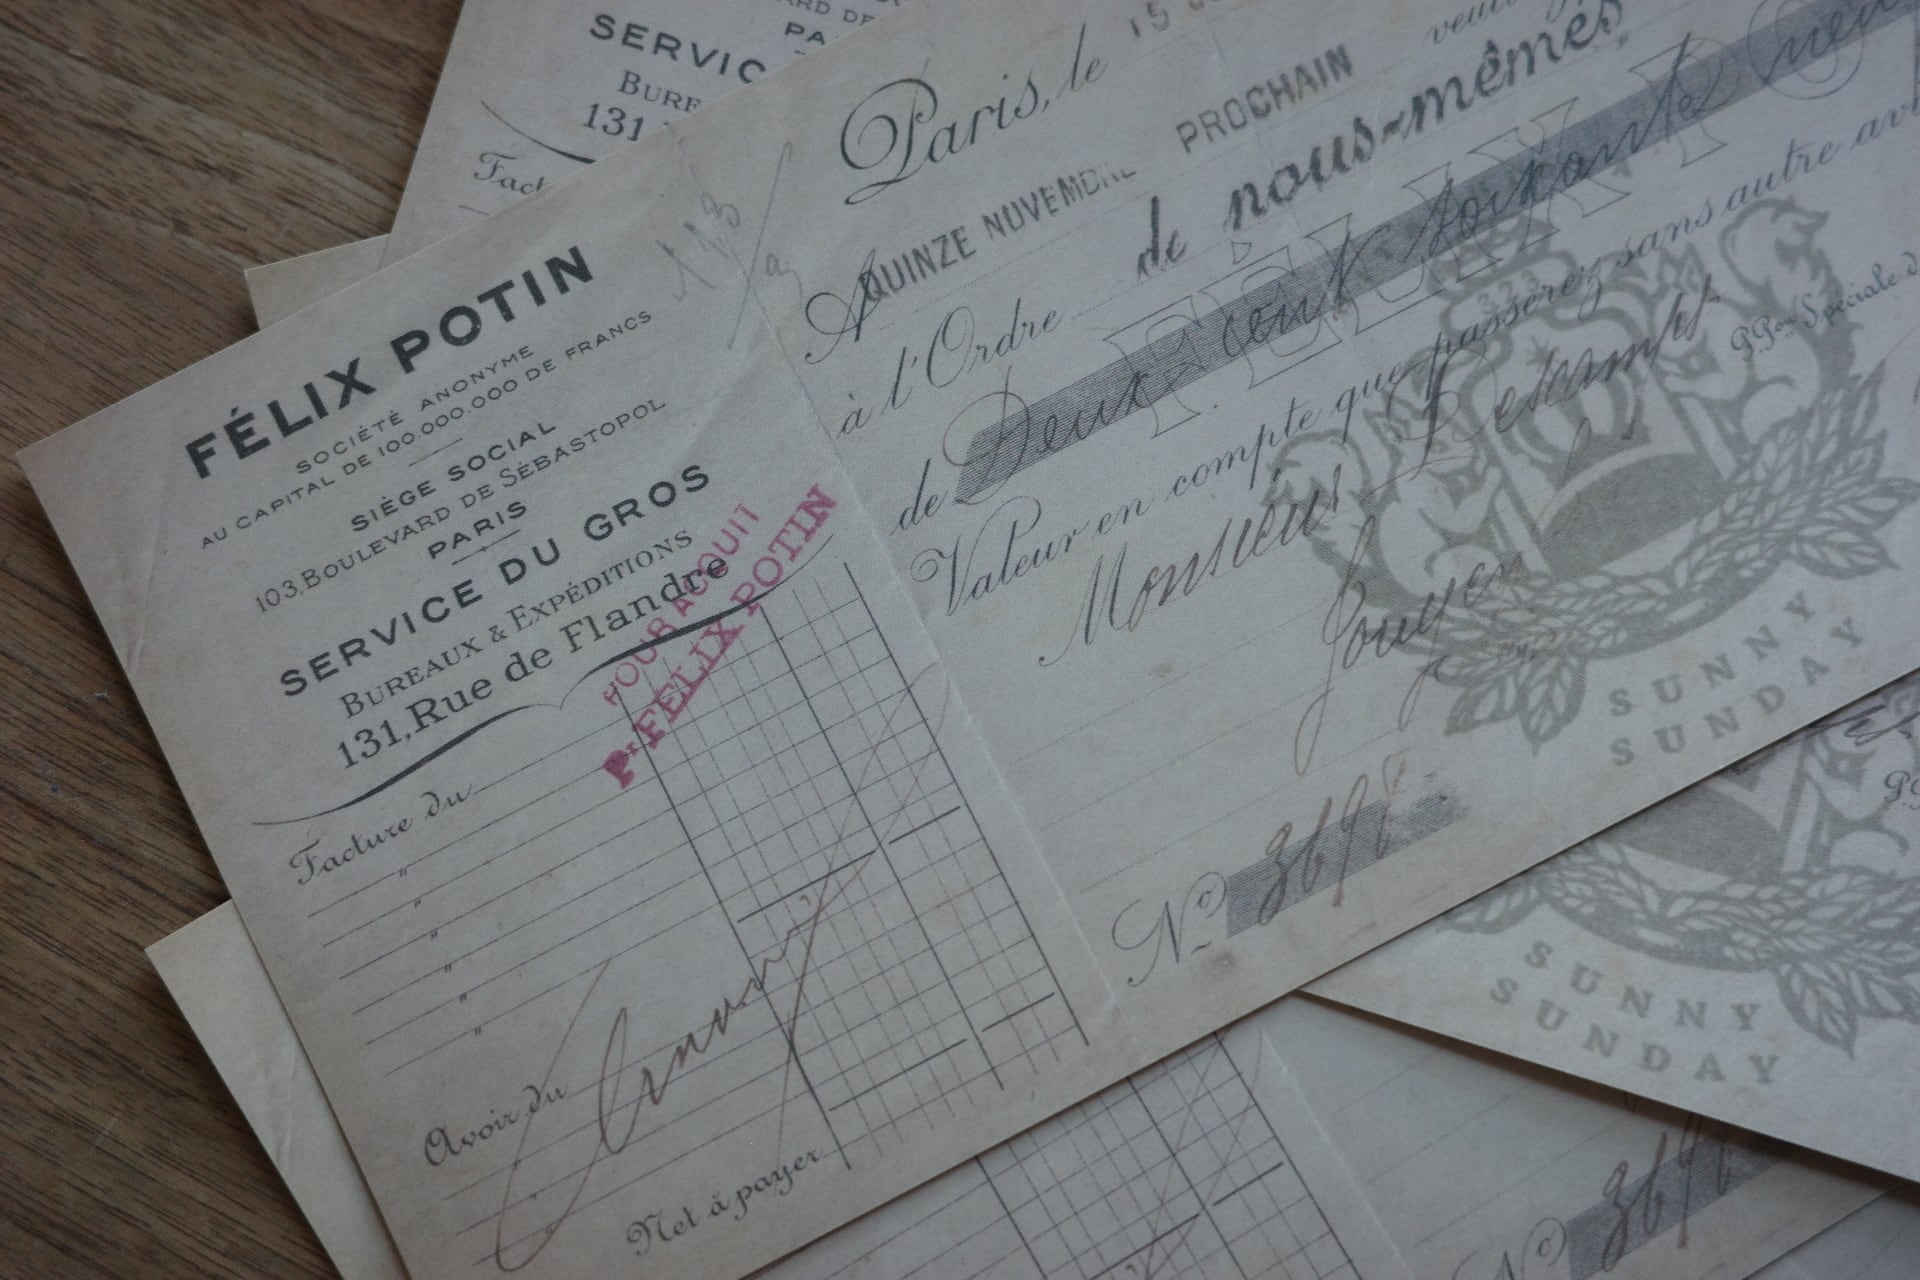 SERVIC
BURE
131
Fact
PA
FÉLIX POTIN
SOCIÉTÉ ANONYME
AU CAPITAL DE 100.000.000 DE FRANCS
SIÈGE SOCIAL
103, BOULEVARD DE SÉBASTOPOL
PARIS
SERVICE DU GROS
BUREAUX & EXPÉDITIONS
131, Rue de Flandre
POUR ACQUIT
Pr FELIX POTIN
Facture du
Avoir du
Net à payer
Paris, le 15
A QUINZE NOVEMBRE PROCHAIN
à l'Ordre de nous-mêmes
de Deux cent soixante neuf
FÉLIX PO
Valeur en compte que passerez sans autre avi
Monsieur Descamps
P.Pon Spéciale d
No 3698
SUNNY
SUNDAY
SUNNY
SUNDAY
No 369